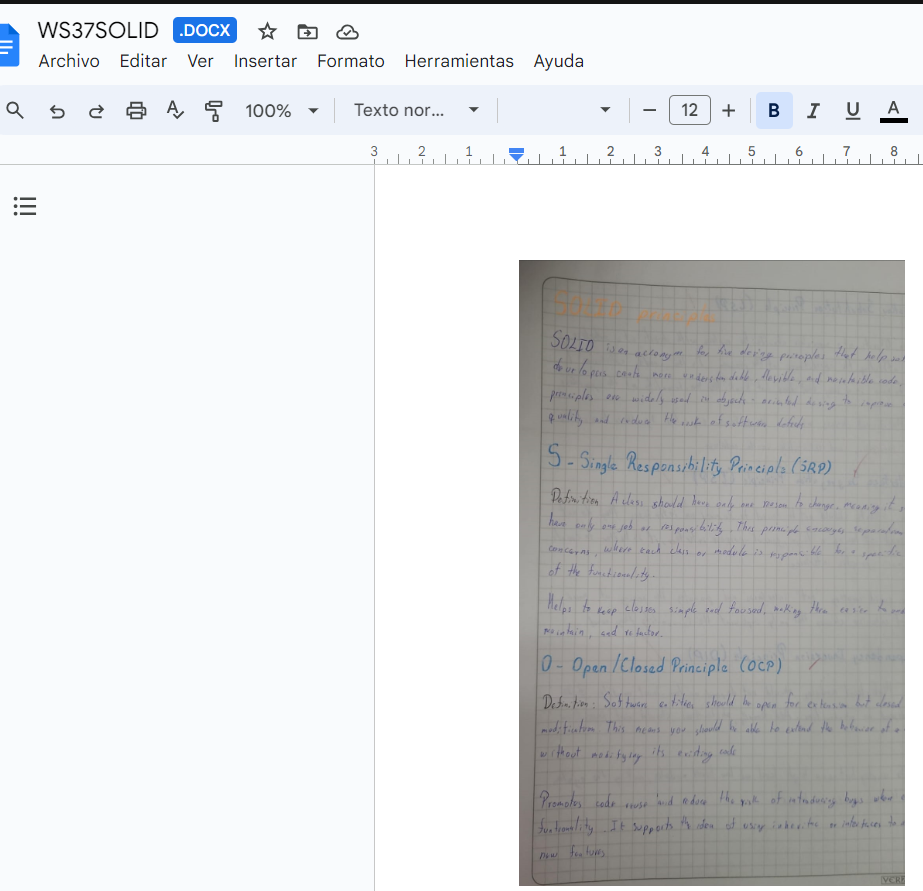 WS37SOLID .DOCX
Archivo Editar Ver Insertar Formato Herramientas Ayuda
100% Texto nor... 12 B I U A
3 2 1 1 2 3 4 5 6 7 8
SOLID principle
SOLID is an acronym for five design principles that help
developers create more understandable, flexible, and code.
principles are widely used in objects-oriented to improve
quality and reduce the risk of software defects
S - Single Responsibility Principle (SRP)
Definition A class should have only one reason to change, meaning it
have only one job or responsibility. This principle separation
concerns, where each class or module is responsible for a specific
of the functionality.
Helps to keep classes simple and focused, making them easier to
maintain, and refactor.
O - Open/Closed Principle (OCP)
Definition: Software entities should be open for extension but closed
modification This means you should be able to extend the behavior of a
without modifying its existing code
Promotes code reuse and reduce the risk of introducing bugs when
functionality. It supports the idea of using or interfaces to
new features